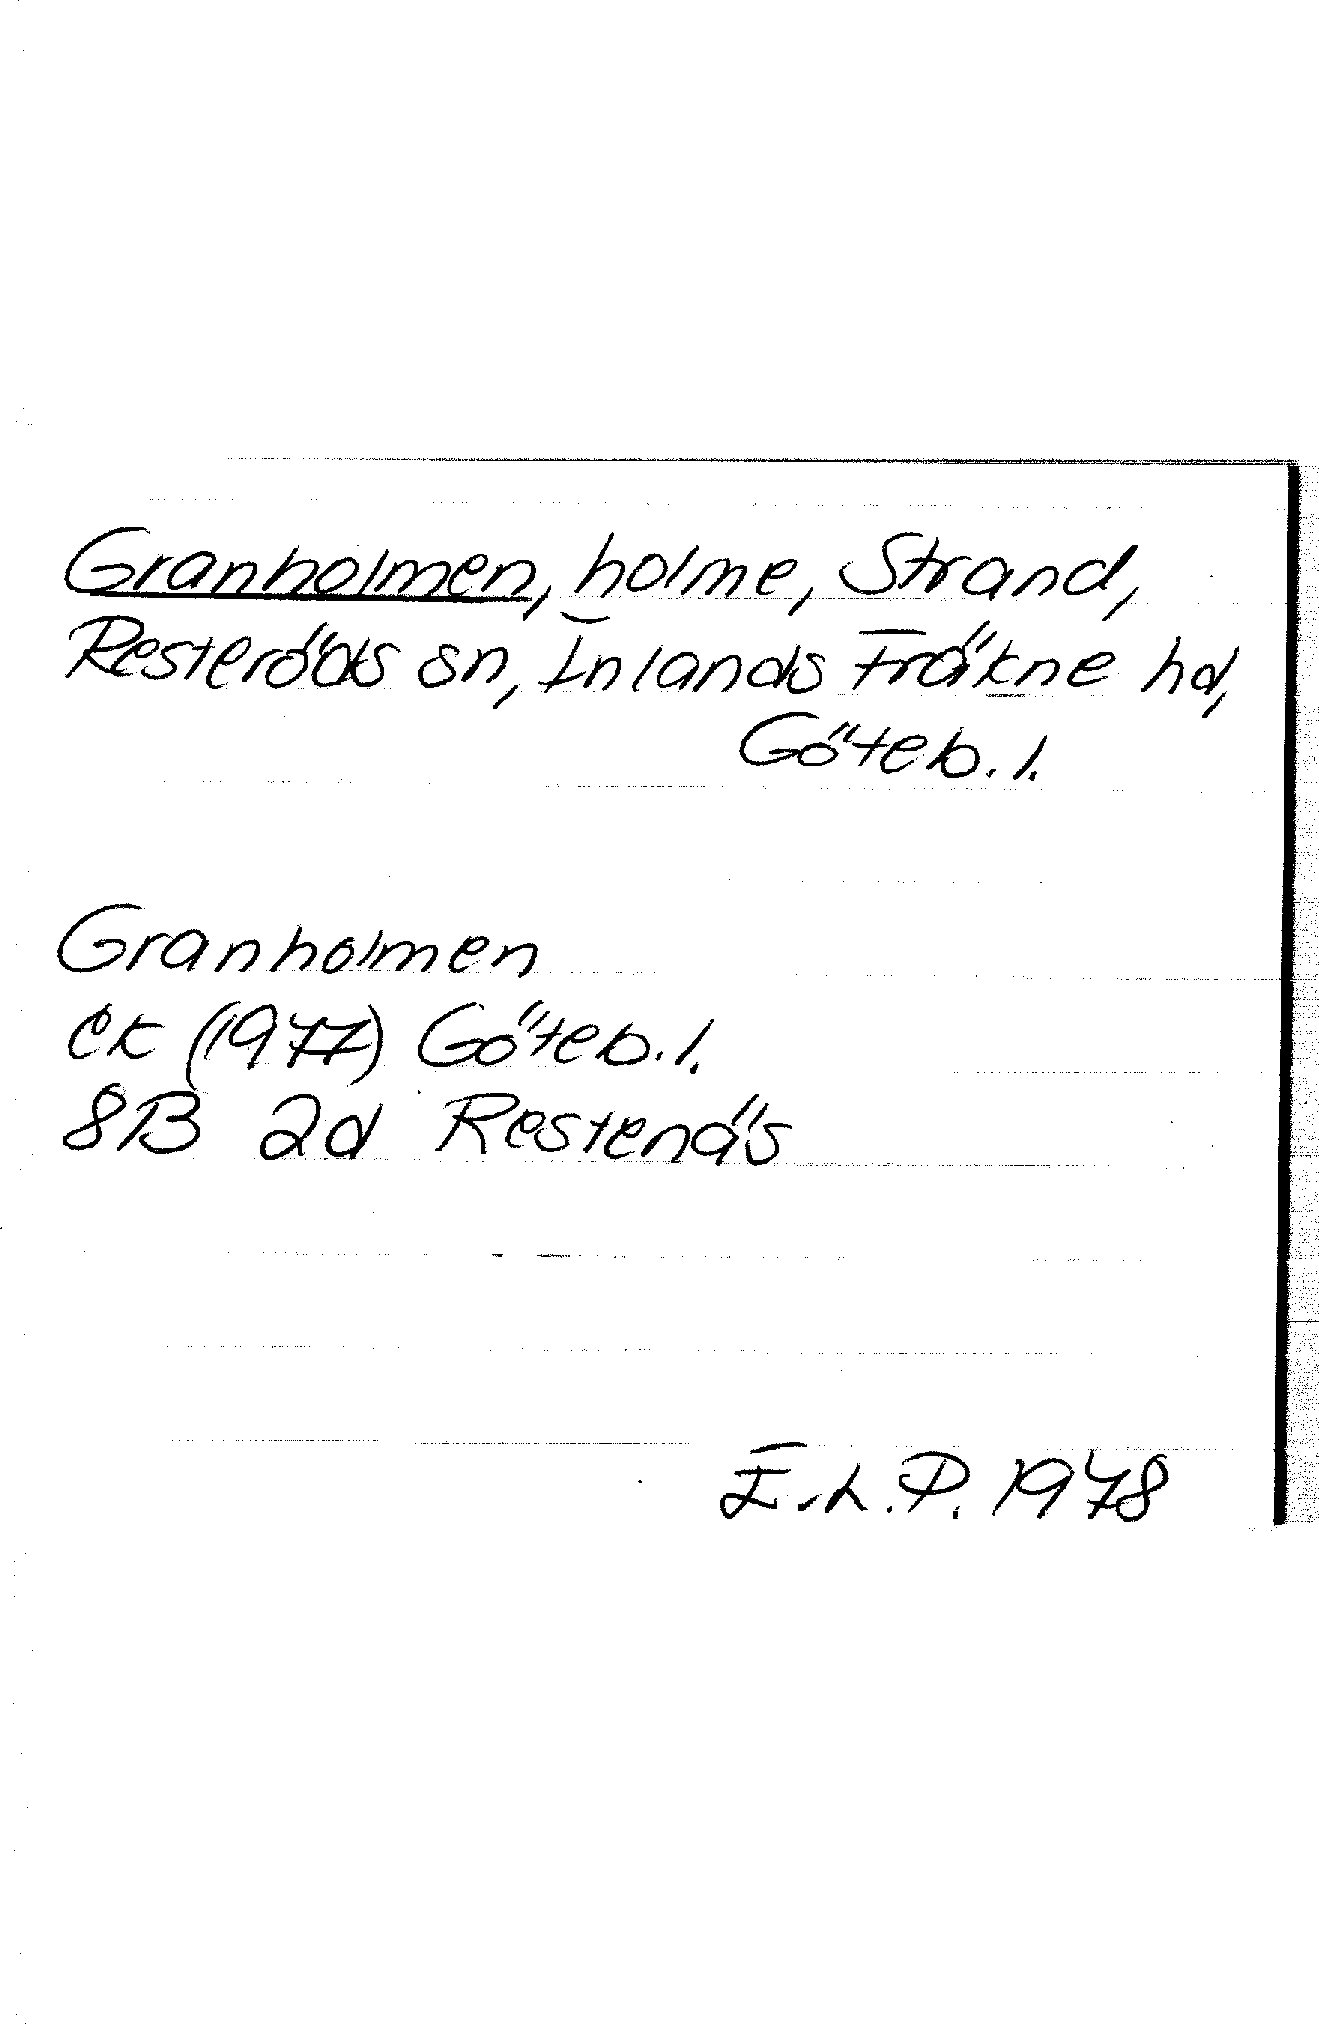 Granholmen, holme, Strand,
Resteröds sn, Inlands Fräkne hd,
Göteb. l.
Granholmen
ek (1977) Göteb. l.
8B 2d Restenäs
I.-L. P. 1978